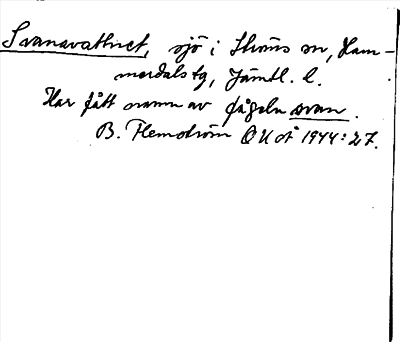 Svanavattnet, sjö i Ströms sn, Ham-
merdals tg, Jämtl. l.
Har fått namn av fågeln svan.
B. Flemström OUÅ 1974:27.